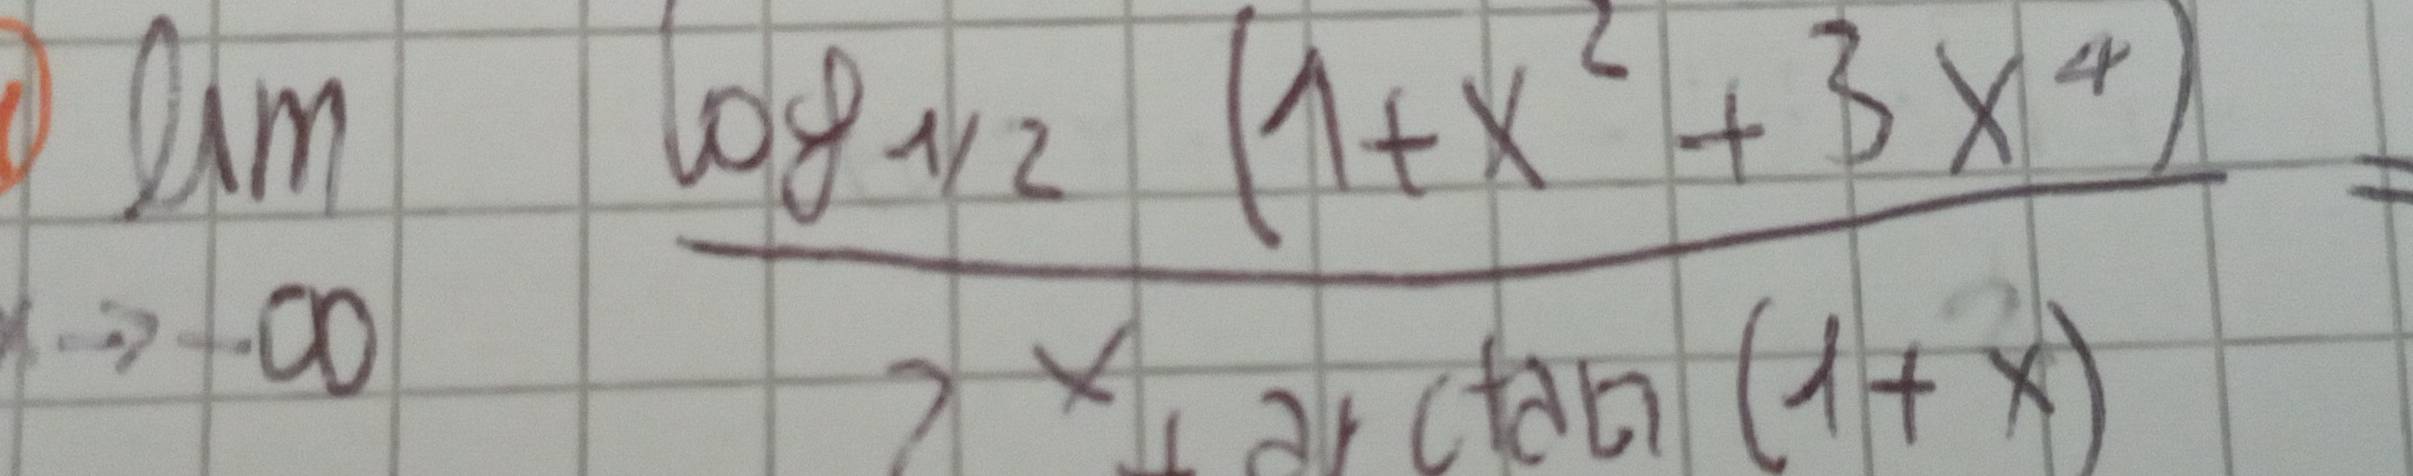 lim log 1/2 (1+x² + 3x⁴) =
x → -∞ 2ˣ + arctan (1+x)